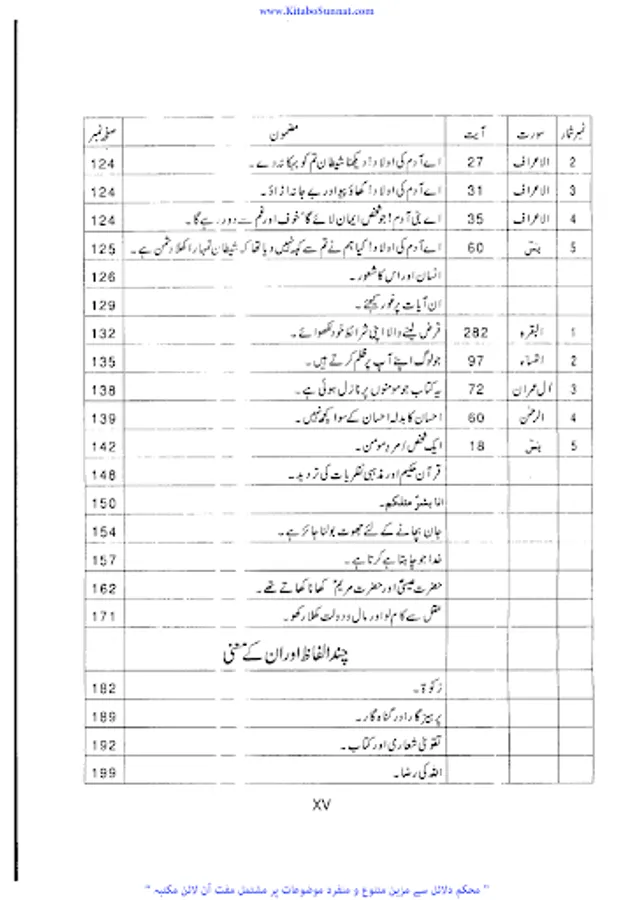 www.KitaboSunnat.com
نمبر شمار سورت آیت مضمون صفحہ نمبر
2 الاعراف 27 اے آدم کی اولاد! دیکھنا شیطان تم کو بہکا نہ دے۔ 124
3 الاعراف 31 اے آدم کی اولاد! کھاؤ پیو اور بے جا نہ اڑاؤ۔ 124
4 الاعراف 35 اے بنی آدم! جو شخص ایمان لائے گا خوف اور غم سے دور رہے گا۔ 124
5 یٰسٓ 60 اے آدم کی اولاد! کیا ہم نے تم سے کہہ نہیں دیا تھا کہ شیطان تمہارا کھلا دشمن ہے۔ 125
انسان اور اس کا شعور۔ 126
ان آیات پر غور کیجئے۔ 129
1 البقرہ 282 قرض لینے والا اپنی شرائط خود لکھوائے۔ 132
2 النساء 97 جو لوگ اپنے آپ پر ظلم کرتے ہیں۔ 135
3 آل عمران 72 یہ کتاب جو مومنوں پر نازل ہوئی ہے۔ 138
4 الرحمٰن 60 احسان کا بدلہ احسان کے سوا کچھ نہیں۔ 139
5 یٰسٓ 18 ایک شخص مرد مومن۔ 142
قرآن حکیم اور مذہبی نظریات کی تردید۔ 148
انا بشر مثلکم۔ 150
جان بچانے کے لئے جھوٹ بولنا جائز ہے۔ 154
خدا جو چاہتا ہے کرتا ہے۔ 157
حضرت عیسیٰؑ اور حضرت مریمؑ کھانا کھاتے تھے۔ 162
عقل سے کام لو اور مال و دولت کھلا رکھو۔ 171
چند الفاظ اور ان کے معنی
زکوٰۃ۔ 182
پرہیزگار اور گناہ گار۔ 189
تقویٰ شعاری اور کتاب۔ 192
اللہ کی رضا۔ 199
XV
" محکم دلائل سے مزین متنوع و منفرد موضوعات پر مشتمل مفت آن لائن مکتبہ "